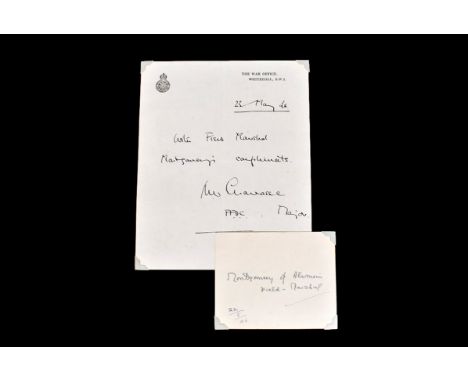 THE WAR OFFICE,
WHITEHALL, S.W.1
May 46
With Field Marshal
Montgomery's compliments.
Major
Montgomery of Alamein
Field-Marshal